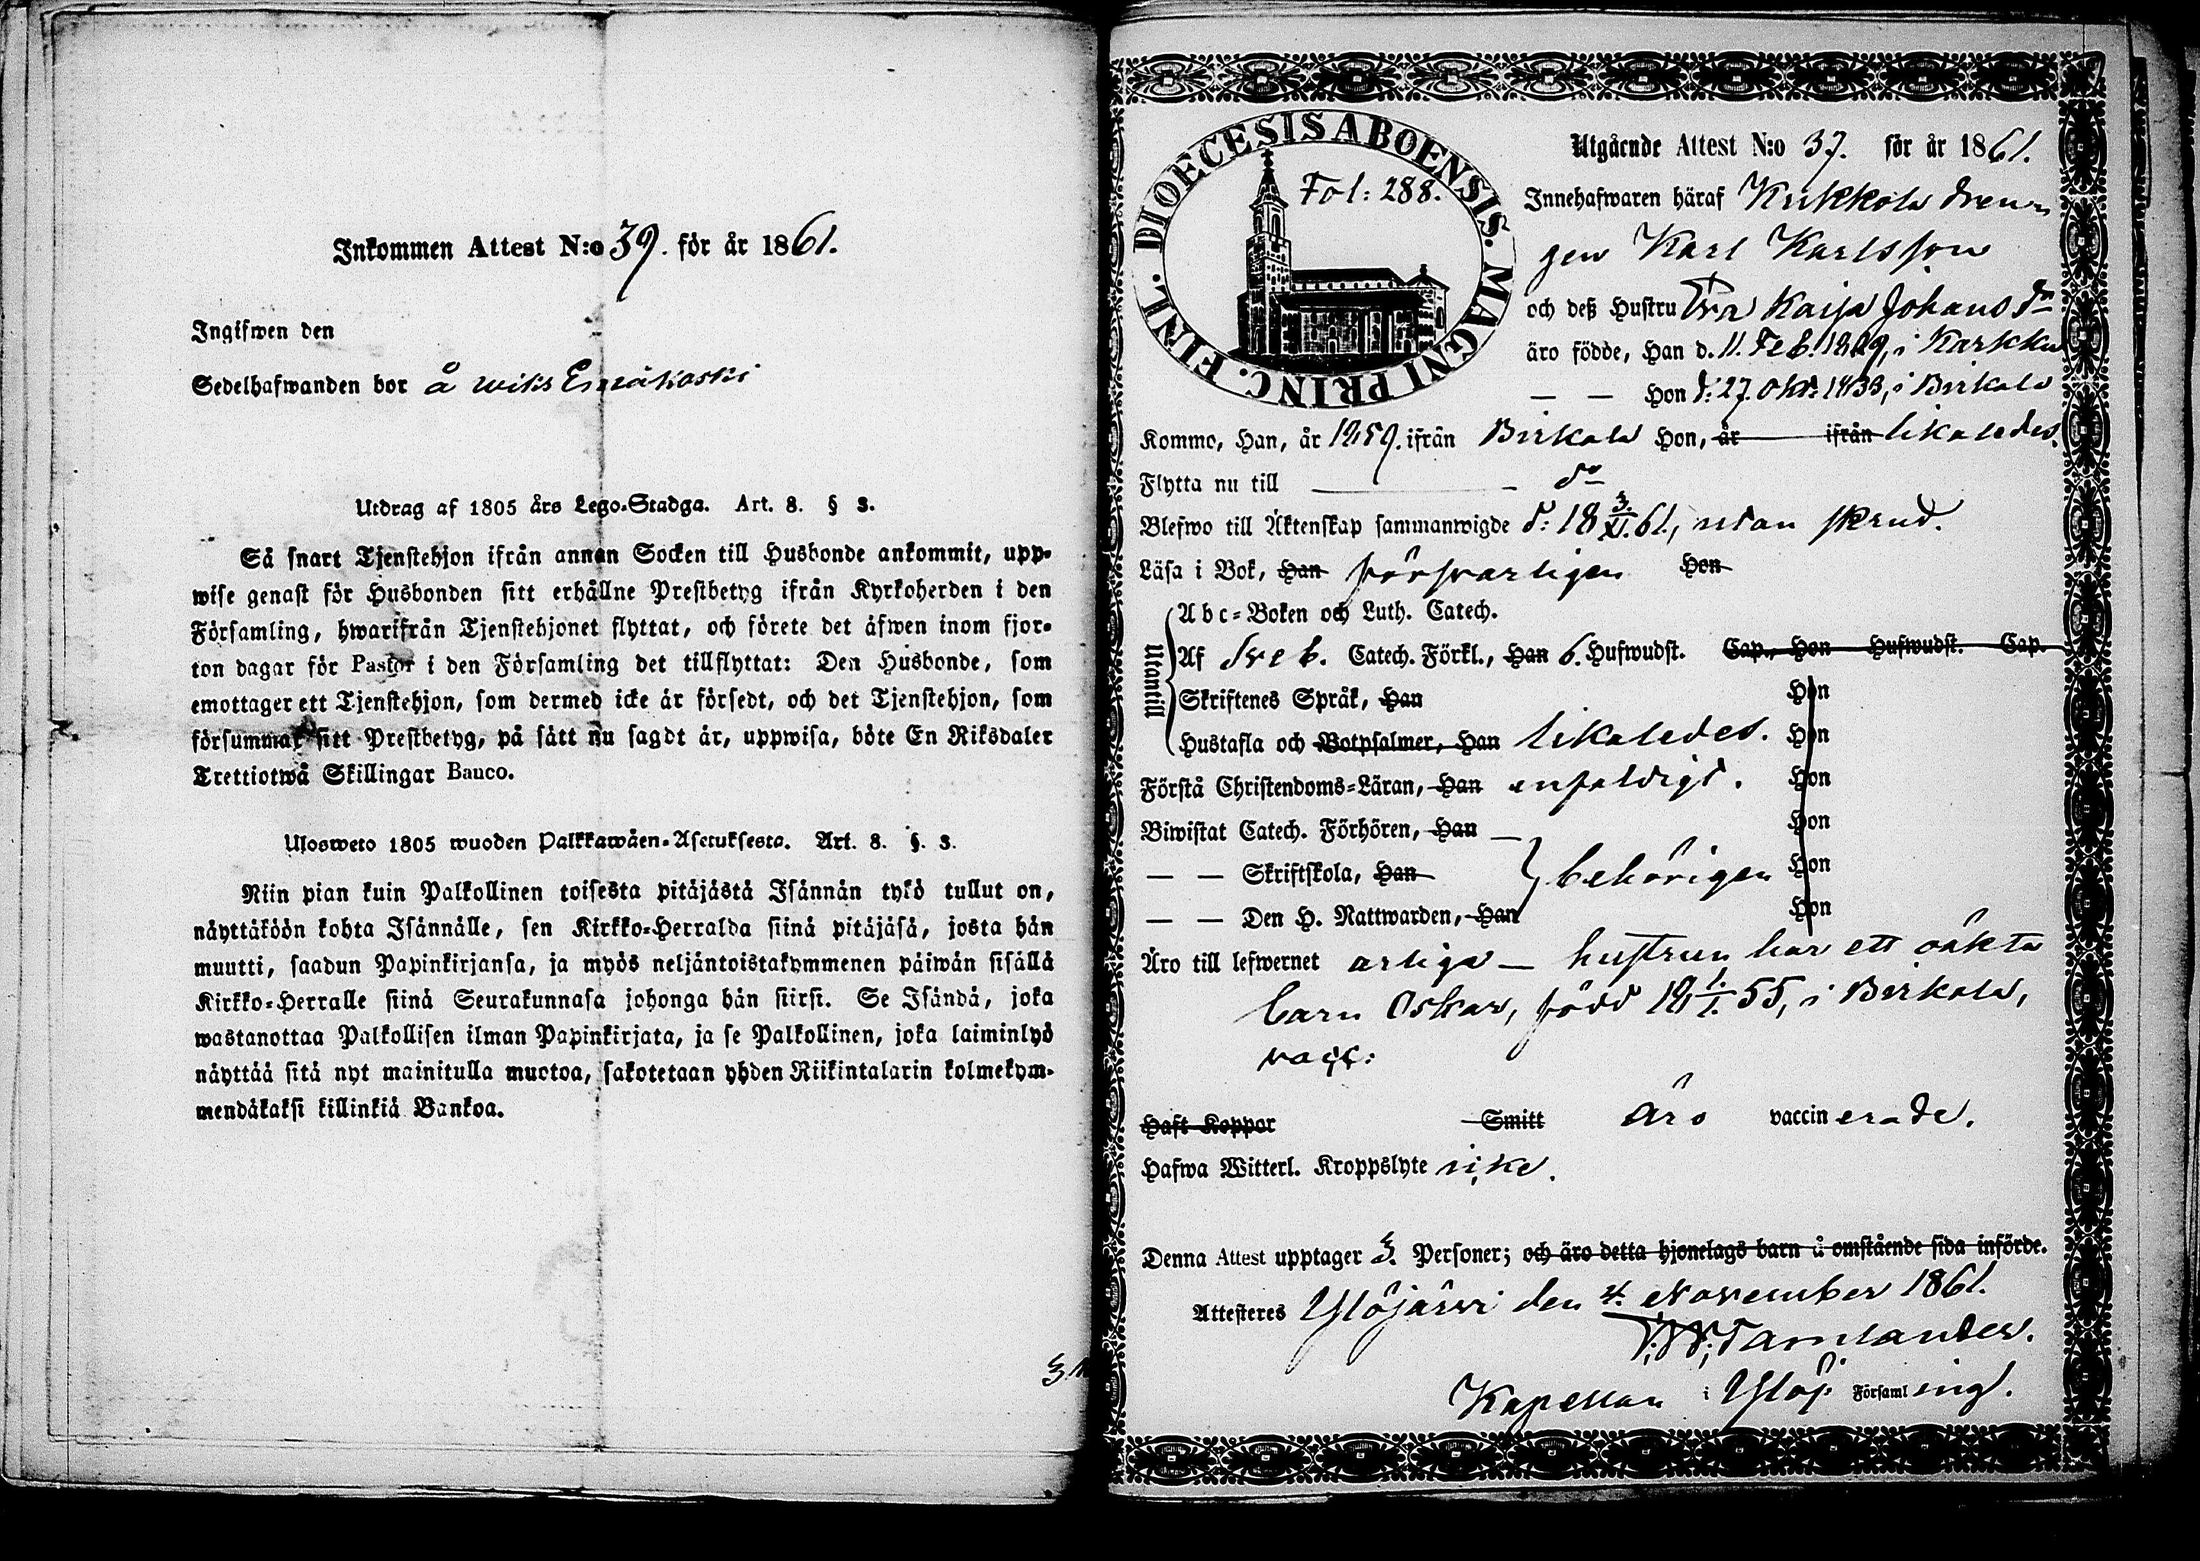 Inkommen Attest N:o 39. för år 1861.
Ingifwen den
Sedelhafwanden bor å wiks Emäkoski
Utdrag af 1805 års Lego-Stadga. Art. 8. § 3.
Så snart Tjenstehjon ifrån annan Socken till Husbonde ankommit, upp-
wise genast för Husbonden sitt erhållne Prestbetyg ifrån Kyrkoherden i den
Församling, hwarifrån Tjenstehjonet flyttat, och förete det äfwen inom fjor-
ton dagar för Pastor i den Församling det tillflyttat: Den Husbonde, som
emottager ett Tjenstehjon, som dermed icke är försedt, och det Tjenstehjon, som
försummar sitt Prestbetyg, på sätt nu sagdt är, uppwisa, böte En Riksdaler
Trettiotwå Skillingar Banco.
Ulosweto 1805 wuoden Palkkawäen-Asetuksesta. Art. 8. §. 3.
Niin pian kuin Palkollinen toisesta pitäjästä Isännän tykö tullut on,
näyttäköön kohta Isännälle, sen Kirkko-Herralda siinä pitäjäsä, josta hän
muutti, saadun Papinkirjansa, ja myös neljäntoistakymmenen päiwän sisällä
Kirkko-Herralle siinä Seurakunnasa johonga hän siirsi. Se Isändä, joka
wastanottaa Palkollisen ilman Papinkirjata, ja se Palkollinen, joka laiminlyö
näyttää sitä nyt mainitulla muotoa, sakotetaan yhden Riikintalarin kolmekym-
mendäkaksi killinkiä Bankoa.
DIOECESIS ABOENSIS. MAGNI PRINC. FINL.
Fol: 288.
Utgående Attest N:o 37. för år 1861.
Innehafwaren häraf Kukkola dren
gen Karl Karlsson
och deß Hustru Eva Kaisa Johans dr
äro födde, Han d. 11. Feb. 1829, i Karkku
— — Hon d: 27. Okt: 1833, i Birkala
Kommo, Han, år 1859. ifrån Birkala Hon, år ifrån likaledes.
Flytta nu till do
Blefwo till Äktenskap sammanwigde d: 18 3/XI. 61, utan skrud.
Läsa i Bok, Han försvarligen Hon
Utantill
Abc-Boken och Luth. Catech.
Af Sveb. Catech. Förkl., Han 6. Hufwudst. Cap., Hon Hufwudst. Cap.
Skriftenes Språk, Han Hon
Hustafla och Botpsalmer, Han likaledes. Hon
Förstå Christendoms-Läran, Han enfaldigt. Hon
Biwistat Catech. Förhören, Han Hon
— — Skriftskola, Han behörigen Hon
— — Den H. Nattwarden, Han Hon
Äro till lefwernet ärliga — hustrun har ett oäkta
barn Oskar, född 18 1/1. 55, i Birkala,
vacc:
Haft Koppor Smitt äro vaccinerade.
Hafwa Witterl. Kroppslyte icke.
Denna Attest upptager 3. Personer; och äro detta hjonelags barn å omstående sida införde.
Attesteres Ylöjärvi den 4. November 1861.
Tamlander.
Kapellan i Ylöj. Församling.